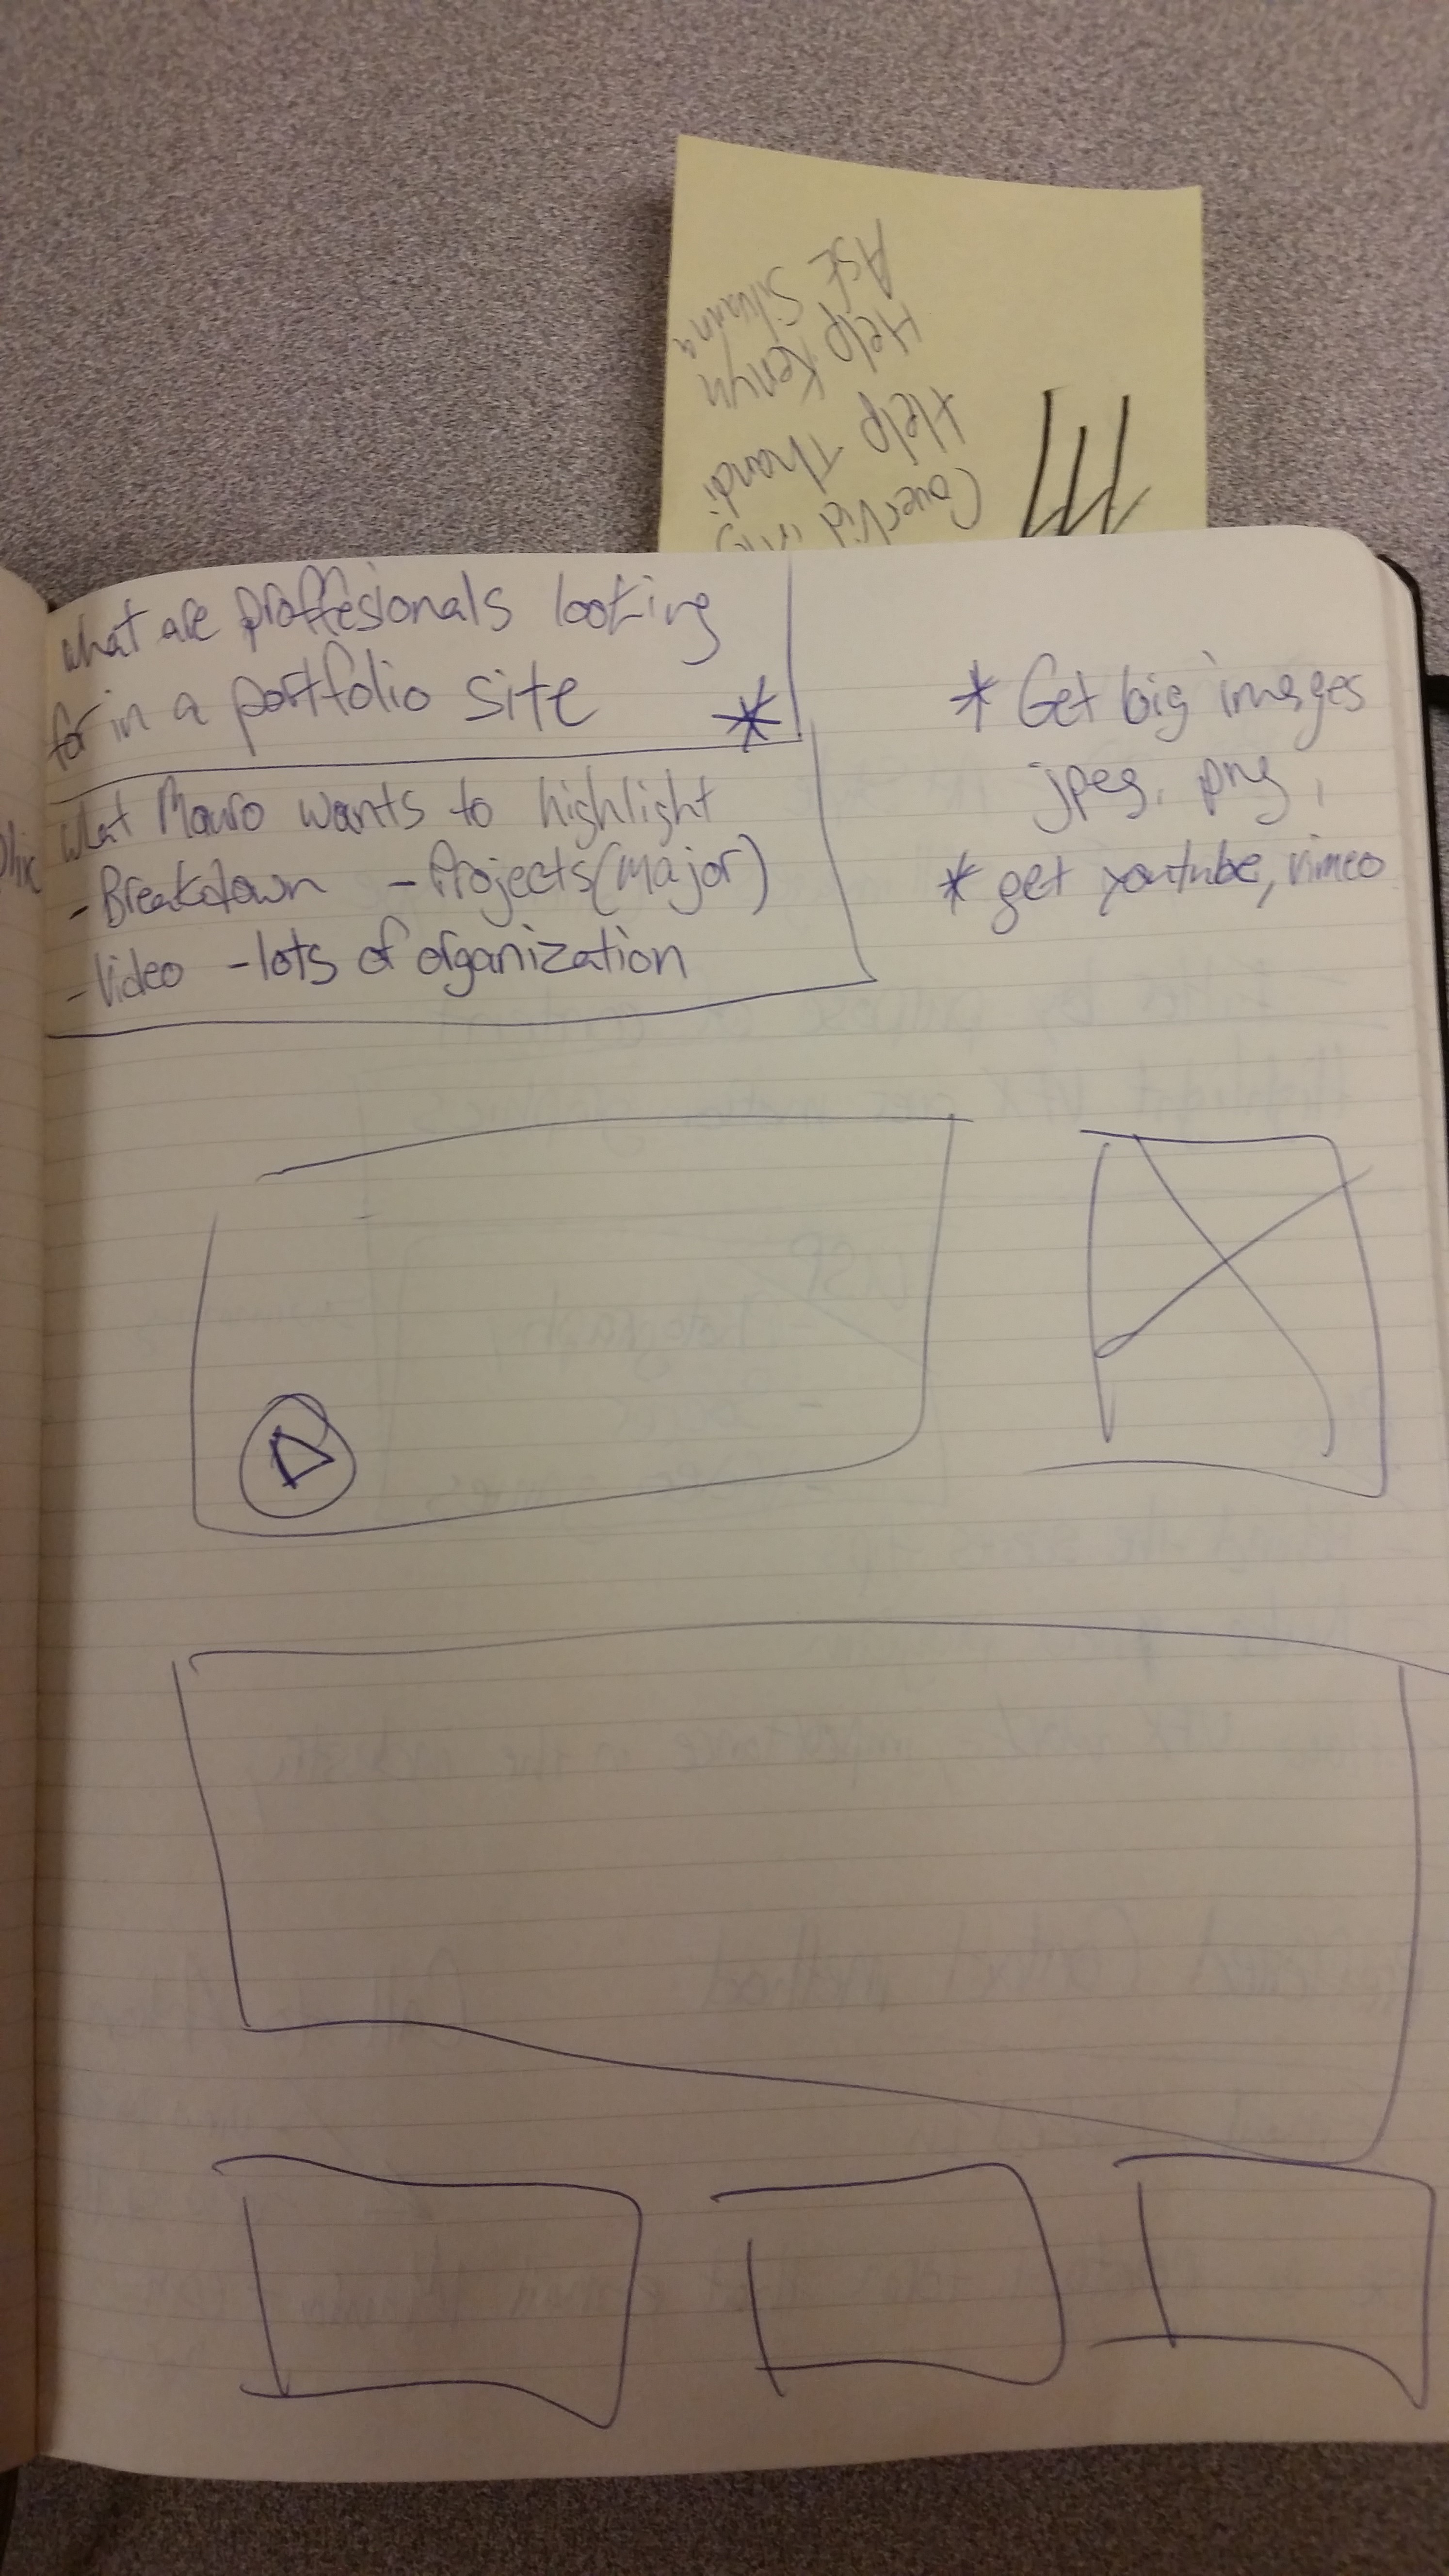 Ask Silvana
Help Kenyn
Help Thandi
what are proffesionals looking
for in a portfolio site *
what Mauro wants to highlight
- Breakdown - Projects (Major)
- Video - lots of organization
* Get big images
jpeg, png,
* get youtube, vimeo